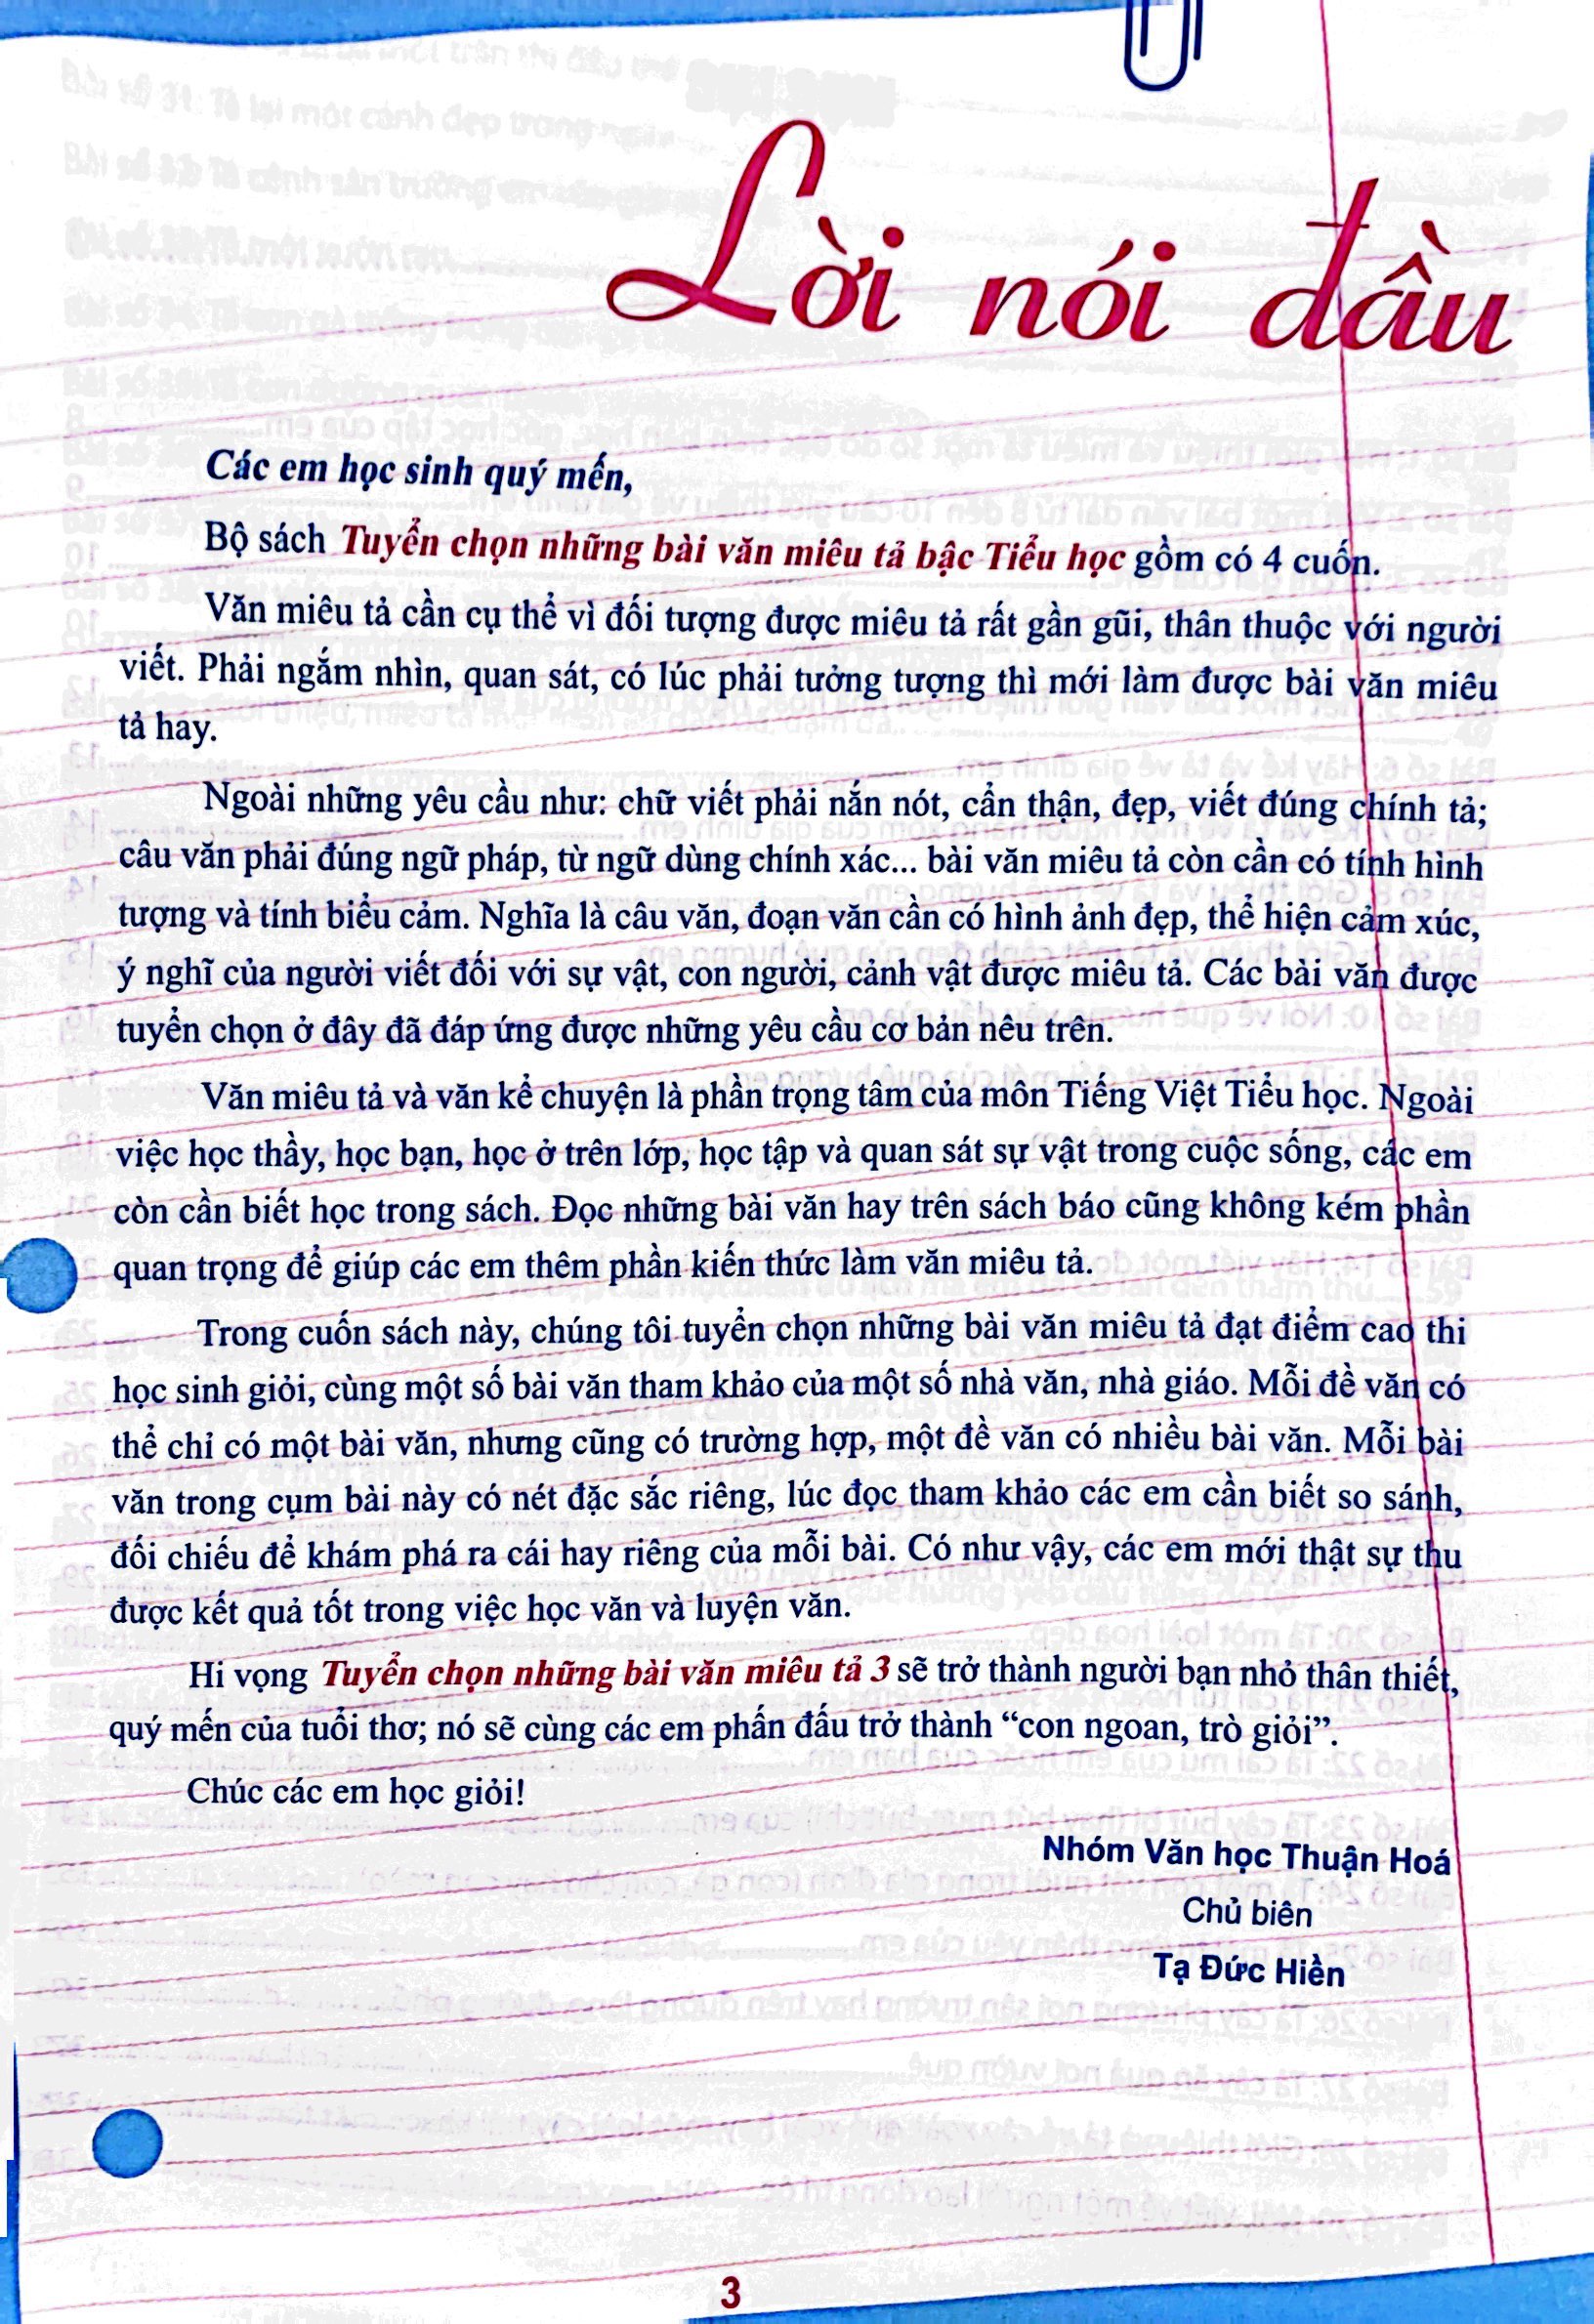 Lời nói đầu
Các em học sinh quý mến,
Bộ sách Tuyển chọn những bài văn miêu tả bậc Tiểu học gồm có 4 cuốn.
Văn miêu tả cần cụ thể vì đối tượng được miêu tả rất gần gũi, thân thuộc với người
viết. Phải ngắm nhìn, quan sát, có lúc phải tưởng tượng thì mới làm được bài văn miêu
tả hay.
Ngoài những yêu cầu như: chữ viết phải nắn nót, cẩn thận, đẹp, viết đúng chính tả;
câu văn phải đúng ngữ pháp, từ ngữ dùng chính xác... bài văn miêu tả còn cần có tính hình
tượng và tính biểu cảm. Nghĩa là câu văn, đoạn văn cần có hình ảnh đẹp, thể hiện cảm xúc,
ý nghĩ của người viết đối với sự vật, con người, cảnh vật được miêu tả. Các bài văn được
tuyển chọn ở đây đã đáp ứng được những yêu cầu cơ bản nêu trên.
Văn miêu tả và văn kể chuyện là phần trọng tâm của môn Tiếng Việt Tiểu học. Ngoài
việc học thầy, học bạn, học ở trên lớp, học tập và quan sát sự vật trong cuộc sống, các em
còn cần biết học trong sách. Đọc những bài văn hay trên sách báo cũng không kém phần
quan trọng để giúp các em thêm phần kiến thức làm văn miêu tả.
Trong cuốn sách này, chúng tôi tuyển chọn những bài văn miêu tả đạt điểm cao thi
học sinh giỏi, cùng một số bài văn tham khảo của một số nhà văn, nhà giáo. Mỗi đề văn có
thể chỉ có một bài văn, nhưng cũng có trường hợp, một đề văn có nhiều bài văn. Mỗi bài
văn trong cụm bài này có nét đặc sắc riêng, lúc đọc tham khảo các em cần biết so sánh,
đối chiếu để khám phá ra cái hay riêng của mỗi bài. Có như vậy, các em mới thật sự thu
được kết quả tốt trong việc học văn và luyện văn.
Hi vọng Tuyển chọn những bài văn miêu tả 3 sẽ trở thành người bạn nhỏ thân thiết,
quý mến của tuổi thơ; nó sẽ cùng các em phấn đấu trở thành “con ngoan, trò giỏi”.
Chúc các em học giỏi!
Nhóm Văn học Thuận Hoá
Chủ biên
Tạ Đức Hiền
3